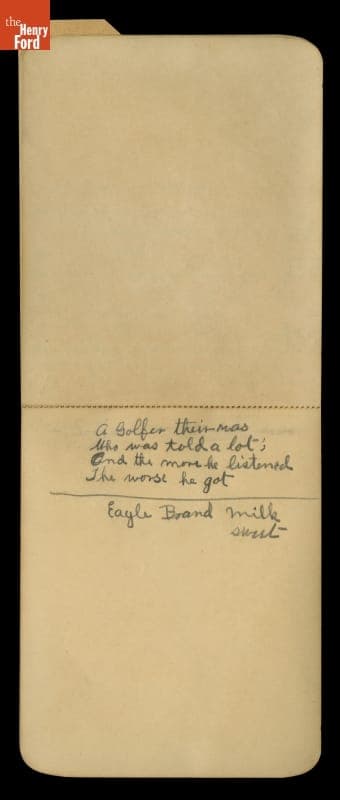 the
Henry
Ford
A Golfer their was
Who was told a lot;
And the more he listened
The worse he got
Eagle Brand Milk
sweet